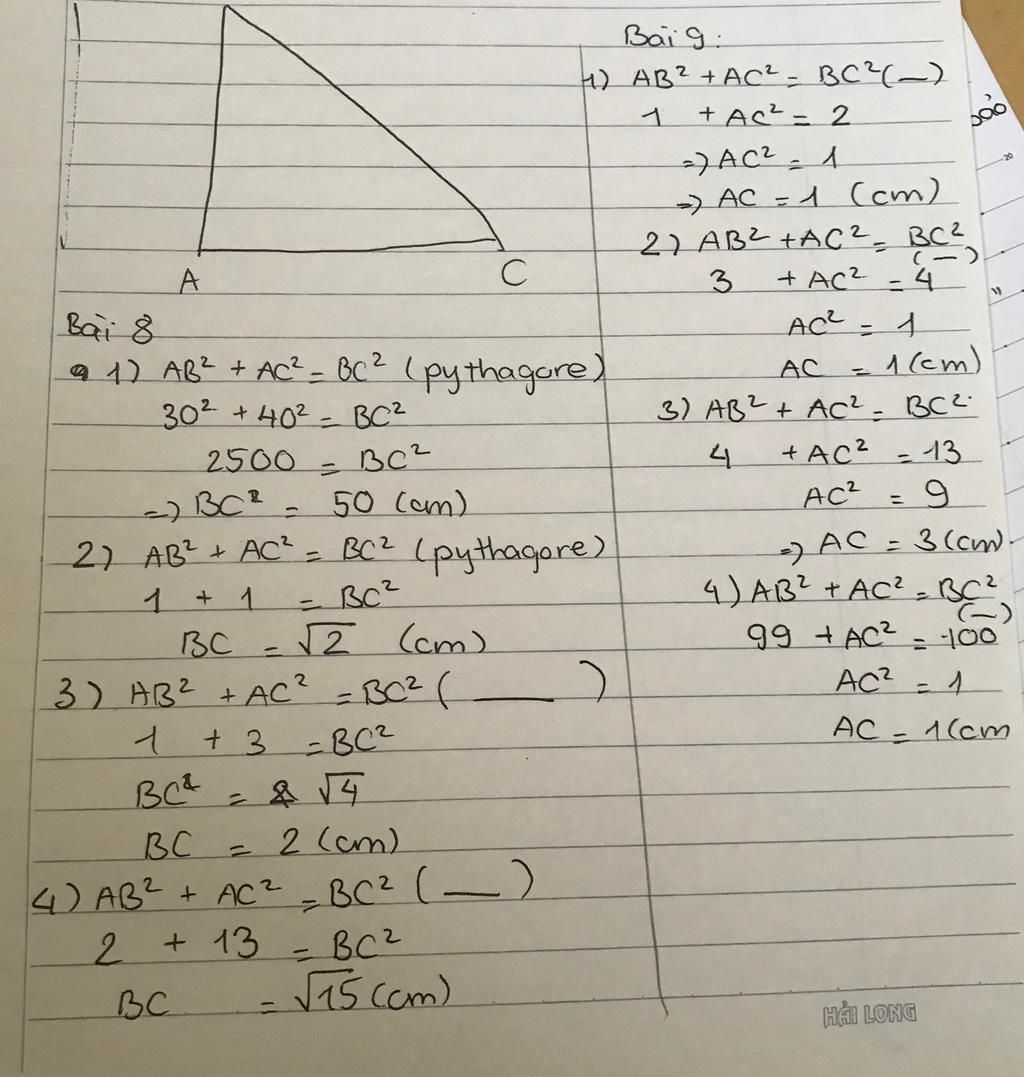 A
C
Bài 8
1) AB² + AC² = BC² (pythagore)
30² + 40² = BC²
2500 = BC²
=> BC = 50 (cm)
2) AB² + AC² = BC² (pythagore)
1 + 1 = BC²
BC = √2 (cm)
3) AB² + AC² = BC² ( — )
1 + 3 = BC²
BC = √4
BC = 2 (cm)
4) AB² + AC² = BC² ( — )
2 + 13 = BC²
BC = √15 (cm)
Bài 9:
1) AB² + AC² = BC² ( — )
1 + AC² = 2
=> AC² = 1
=> AC = 1 (cm)
2) AB² + AC² = BC²
( — )
3 + AC² = 4
AC² = 1
AC = 1 (cm)
3) AB² + AC² = BC²
4 + AC² = 13
AC² = 9
=> AC = 3 (cm)
4) AB² + AC² = BC²
( — )
99 + AC² = 100
AC² = 1
AC = 1 (cm
HẢI LONG